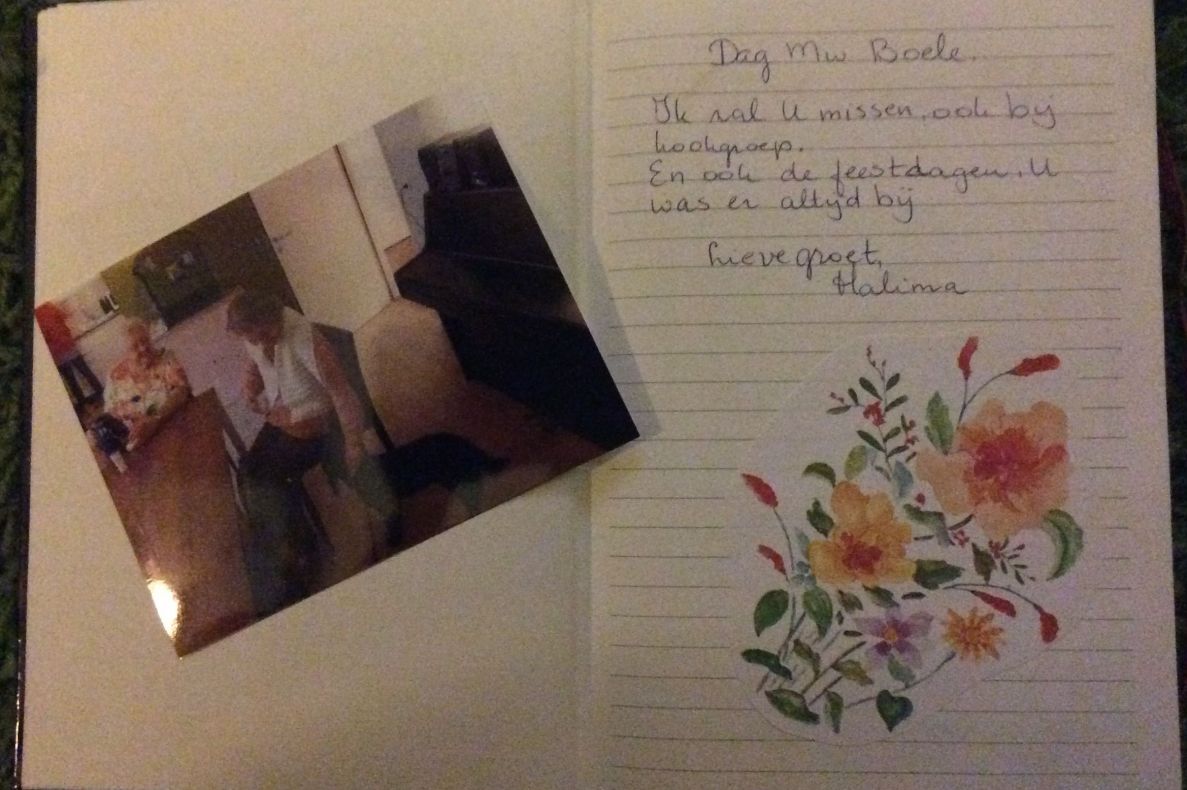 Dag Mw Boele.
Ik zal U missen, ook bij
kookgroep.
En ook de feestdagen. U
was er altijd bij
Lieve groet,
Halima